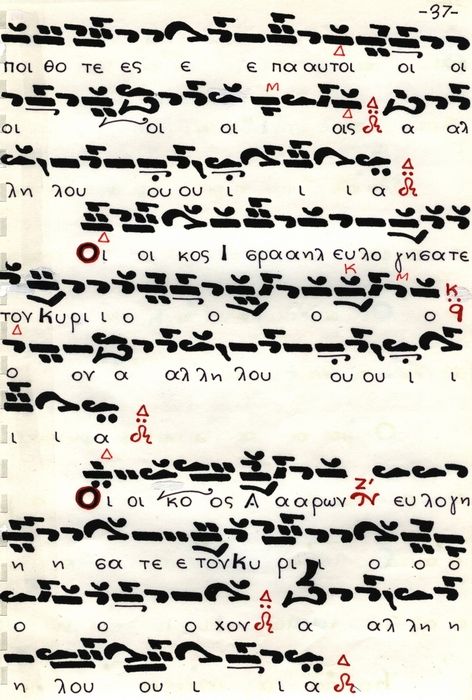 -37-
ποι θο τε ες ε ε πα αυτοι οι οι
οι οι οι οις α αλ
λη λου ου ου ι ι ι α
Οι οι κος Ι σρα αηλ ευλο γησατε
τον Κυρι ι ο ο ο ο ο
ο ον α αλ λη λου ου ου ι ι
ι ι α
Οι οι κο ος Α α αρων ευ λο γη
η η σα τε ε τον Κυ ρι ι ο ο ο
ο ο ο χον α αλ λη η
η λου ου ι ι α